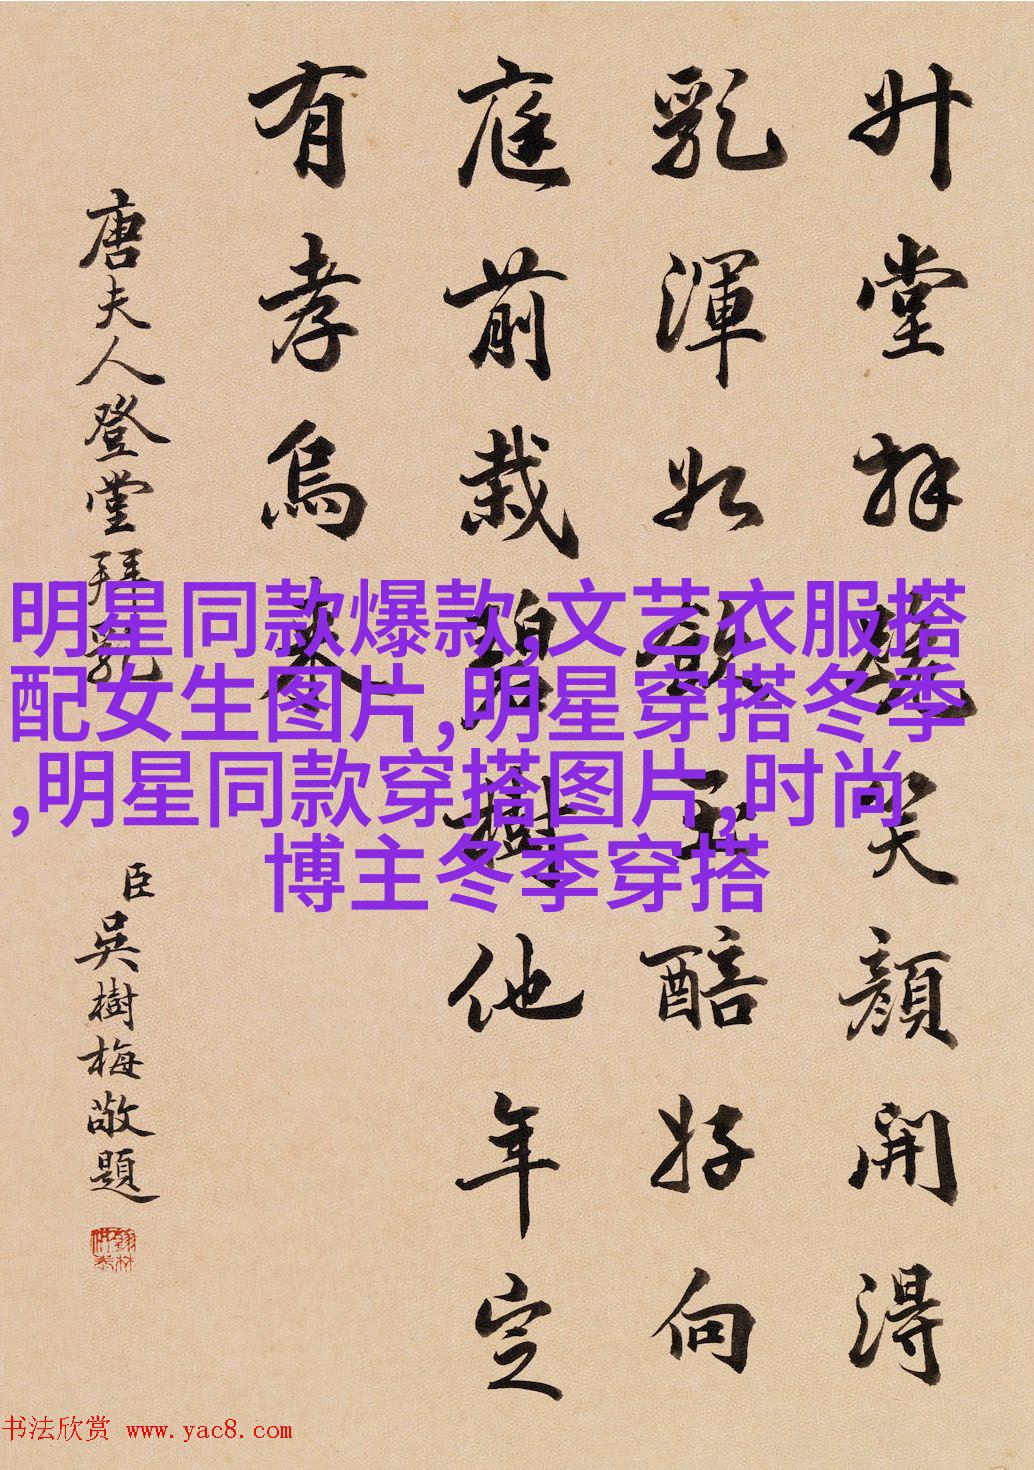 升堂拜笑顔開得
乳渾如飲玉醅好向
庭前栽碧樹他年定
有孝烏來
唐夫人登堂拜乳
臣吳樹梅敬題
明星同款爆款,文艺衣服搭
配女生图片,明星穿搭冬季
,明星同款穿搭图片,时尚
博主冬季穿搭
书法欣赏 www.yac8.com